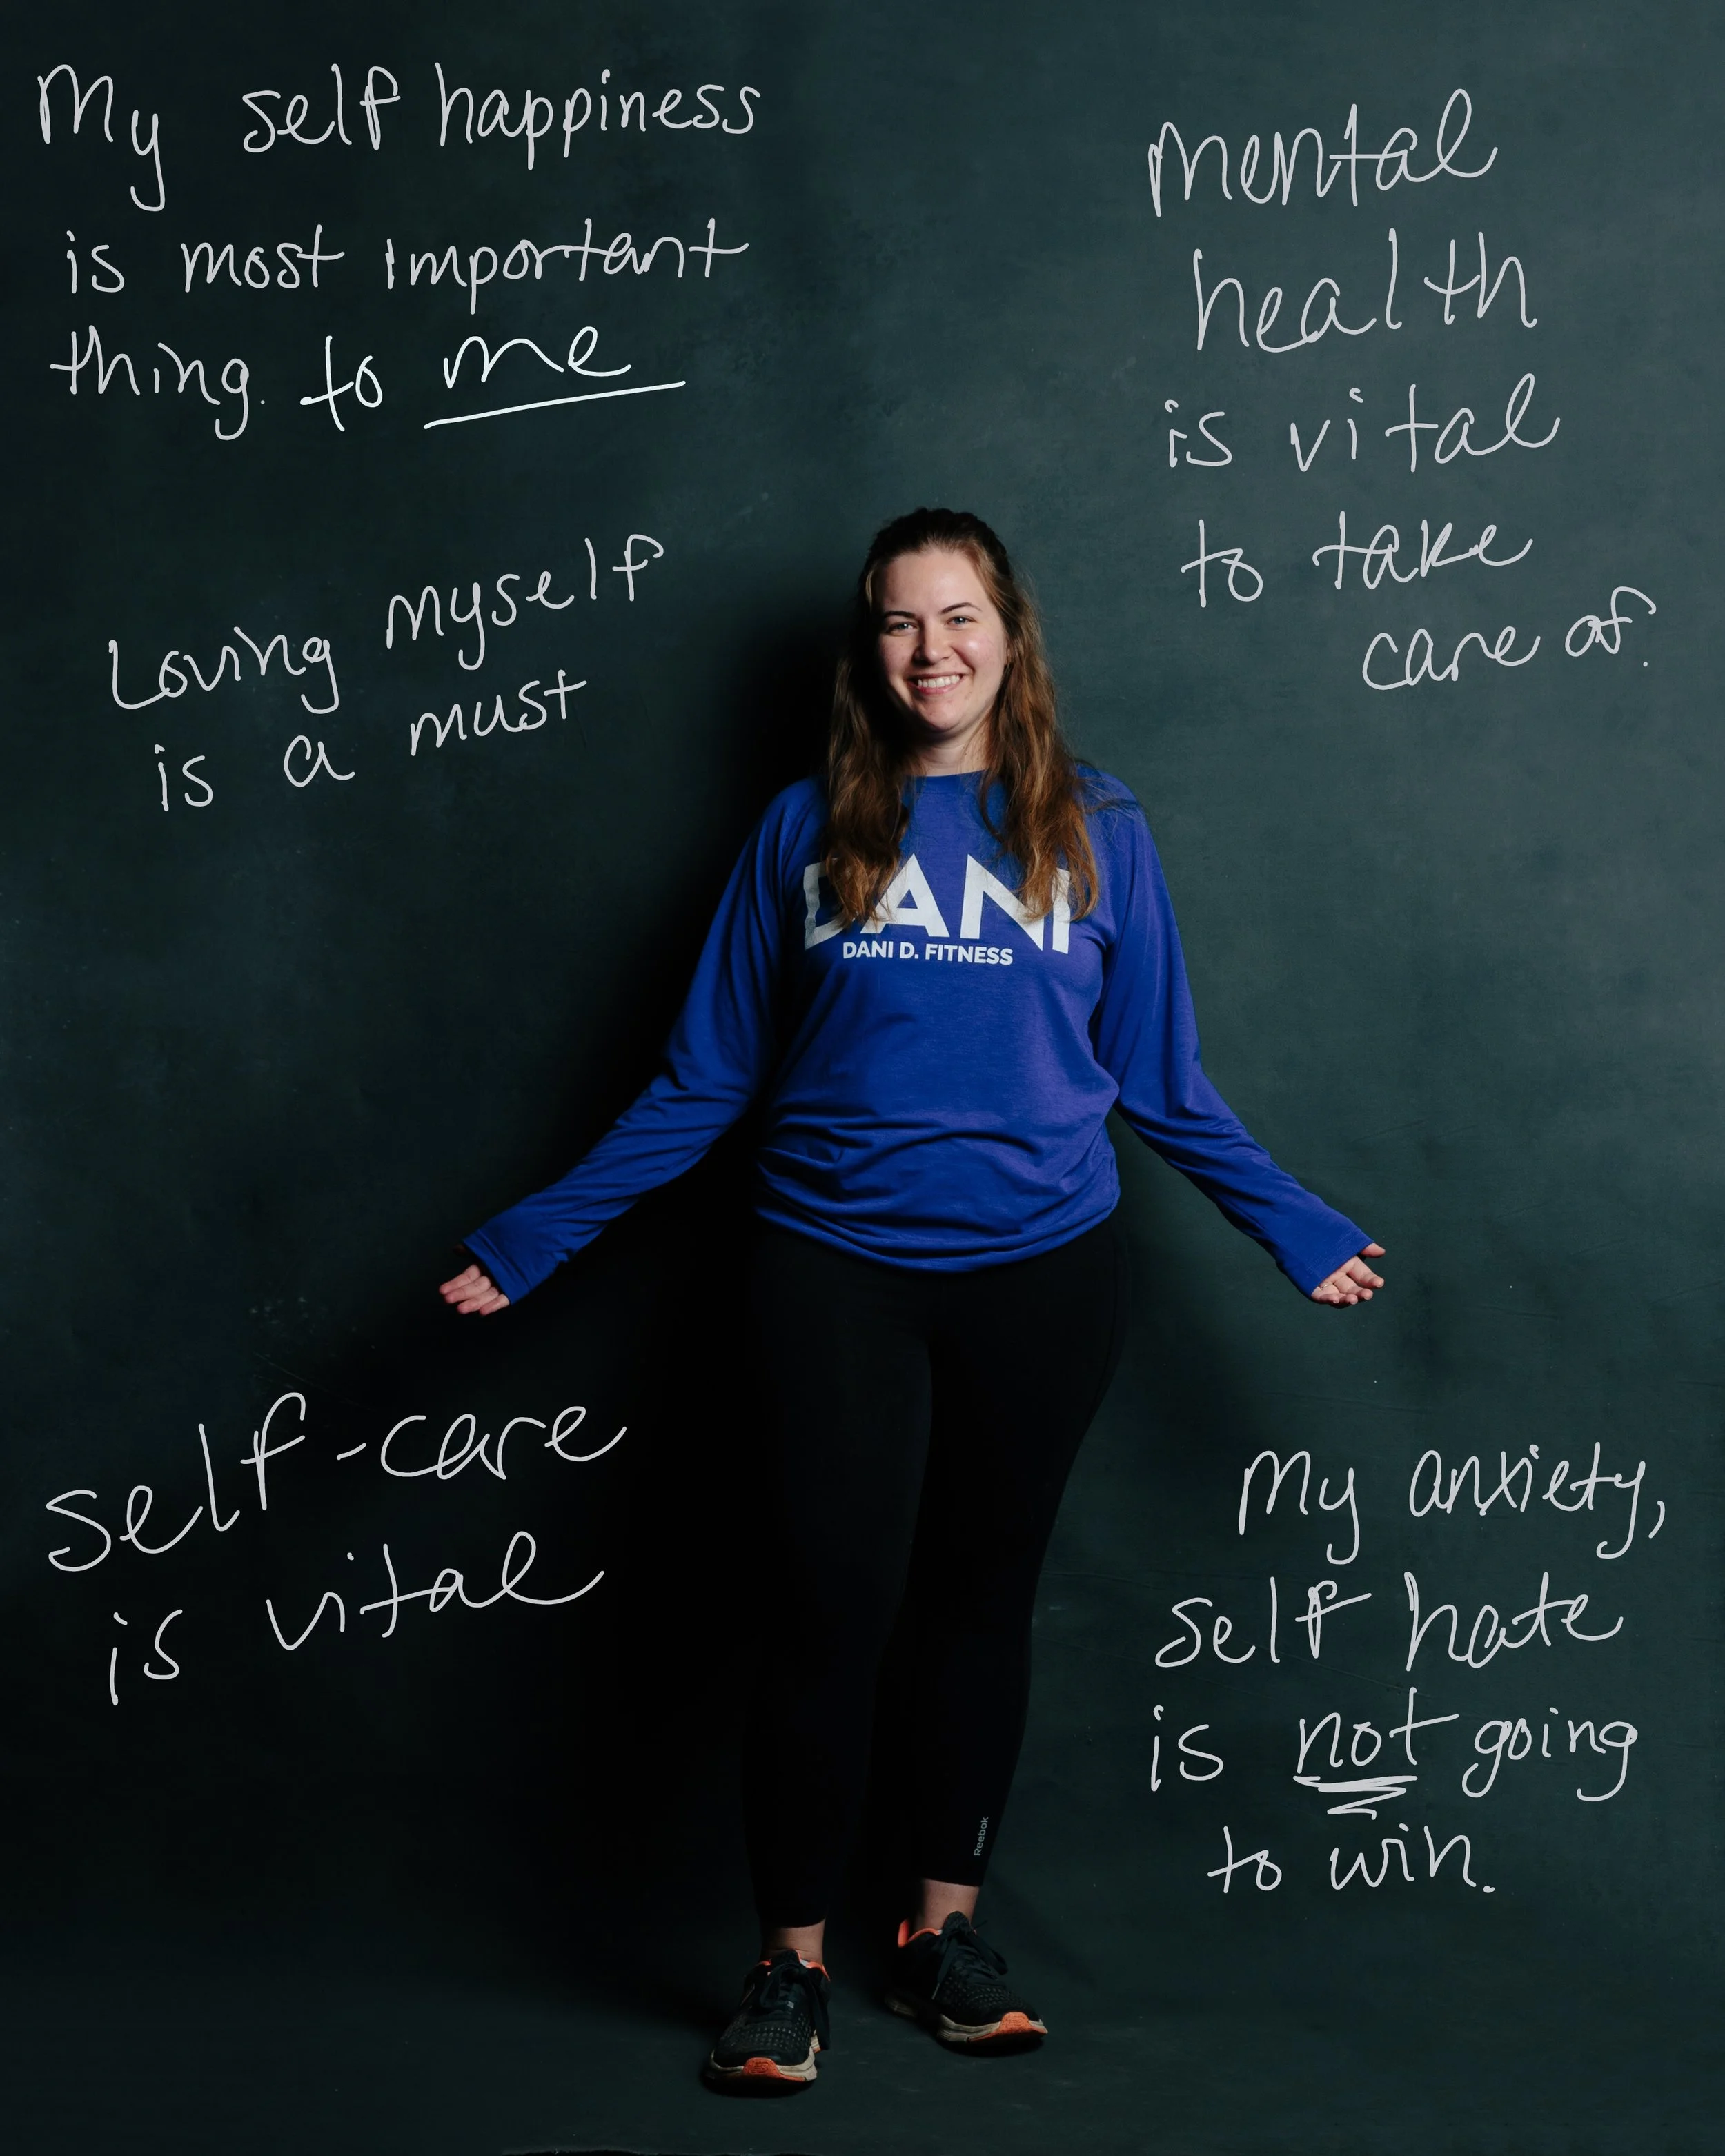 My self happiness
is most important
thing. to me
mental
health
is vital
to take
care of.
Loving myself
is a must
DANI
DANI D. FITNESS
self-care
is vital
My anxiety,
self hate
is not going
to win.
Reebok